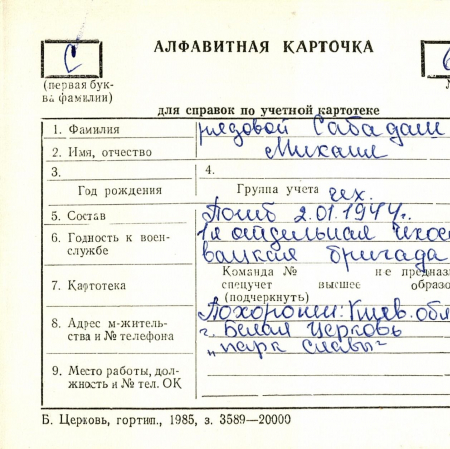 С
АЛФАВИТНАЯ КАРТОЧКА
(первая бук-
ва фамилии)
для справок по учетной картотеке
1. Фамилия рядовой Сабадаш
2. Имя, отчество Михаил
3. 4.
Год рождения Группа учета чех.
5. Состав Погиб 2.01.1944г.
6. Годность к воен-
службе
1я отдельная чехос
вацкая бригада
Команда № не предназ
7. Картотека спецучет высшее образо
(подчеркнуть)
Похоронен: Киев. обл
8. Адрес м-житель-
ства и № телефона
г. Белая Церковь
„парк славы"
9. Место работы, дол-
жность и № тел. ОК
Б. Церковь, гортип., 1985, з. 3589—20000